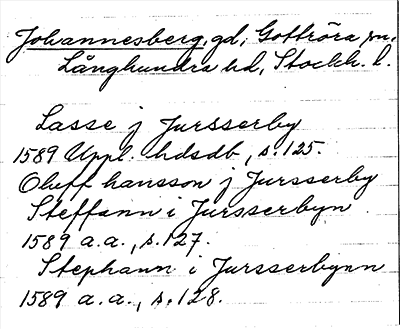 Johannesberg, gd, Gottröra sn,
Långhundra hd, Stockh. l.
Lasse j Jursserby
1589 Uppl. hdsdb, s. 125.
Oleff hansson j Jursserby
Steffann i Jursserbyn
1589 a.a., s. 127.
Stephann i Jursserbynn
1589 a.a., s. 128.